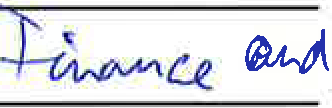 Finance and